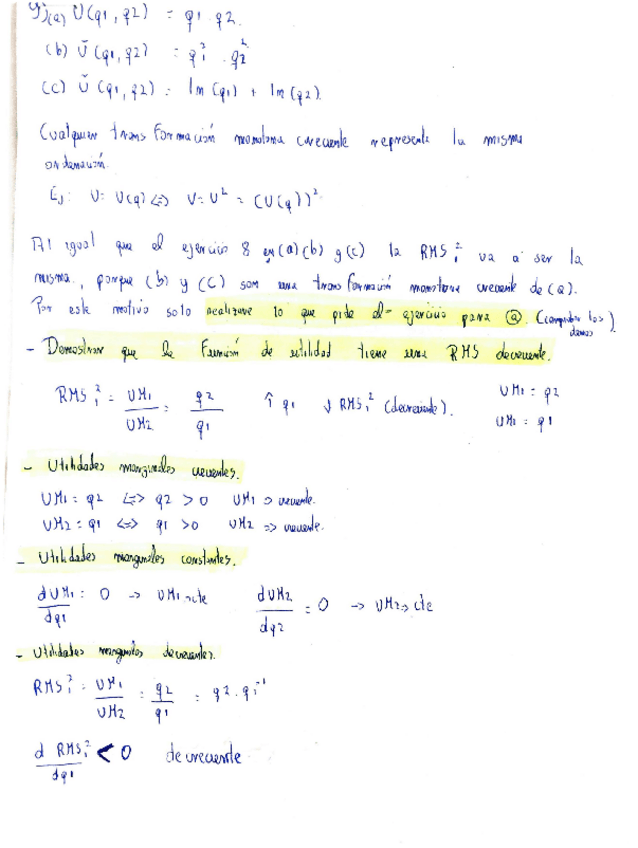 9) (a) U(q1, q2) = q1 · q2.
(b) Ũ(q1, q2) = q1² · q2²
(c) Ũ(q1, q2) = ln(q1) + ln(q2).
Cualquier transformación monotona creciente represente la misma
ordenación.
Ej: U = U(q) <=> V = U² = (U(q))²
Al igual que el ejercicio 8 en (a) (b) y (c) la RMS₁² va a ser la
misma, porque (b) y (c) son una transformación monotona creciente de (a).
Por este motivo solo realizare lo que pide el ejercicio para ⓐ. (comprobar los demas)
- Demostrar que la Función de utilidad tiene una RMS decreciente.
RMS₁² = UM1/UM2 = q2/q1 ↑ q1 ↓ RMS₁² (decreciente). UM1 = q2
UM1 = q1
- Utilidades marginales crecientes.
UM1 = q2 <=> q2 > 0 UM1 => creciente.
UM2 = q1 <=> q1 > 0 UM2 => creciente.
- Utilidades marginales constantes.
dUM1/dq1 = 0 → UM1 → cte dUM2/dq2 = 0 → UM2 → cte
- Utilidades marginales decrecientes.
RMS₁² = UM1/UM2 = q2/q1 = q2 · q1⁻¹
d RMS₁²/dq1 < 0 decreciente